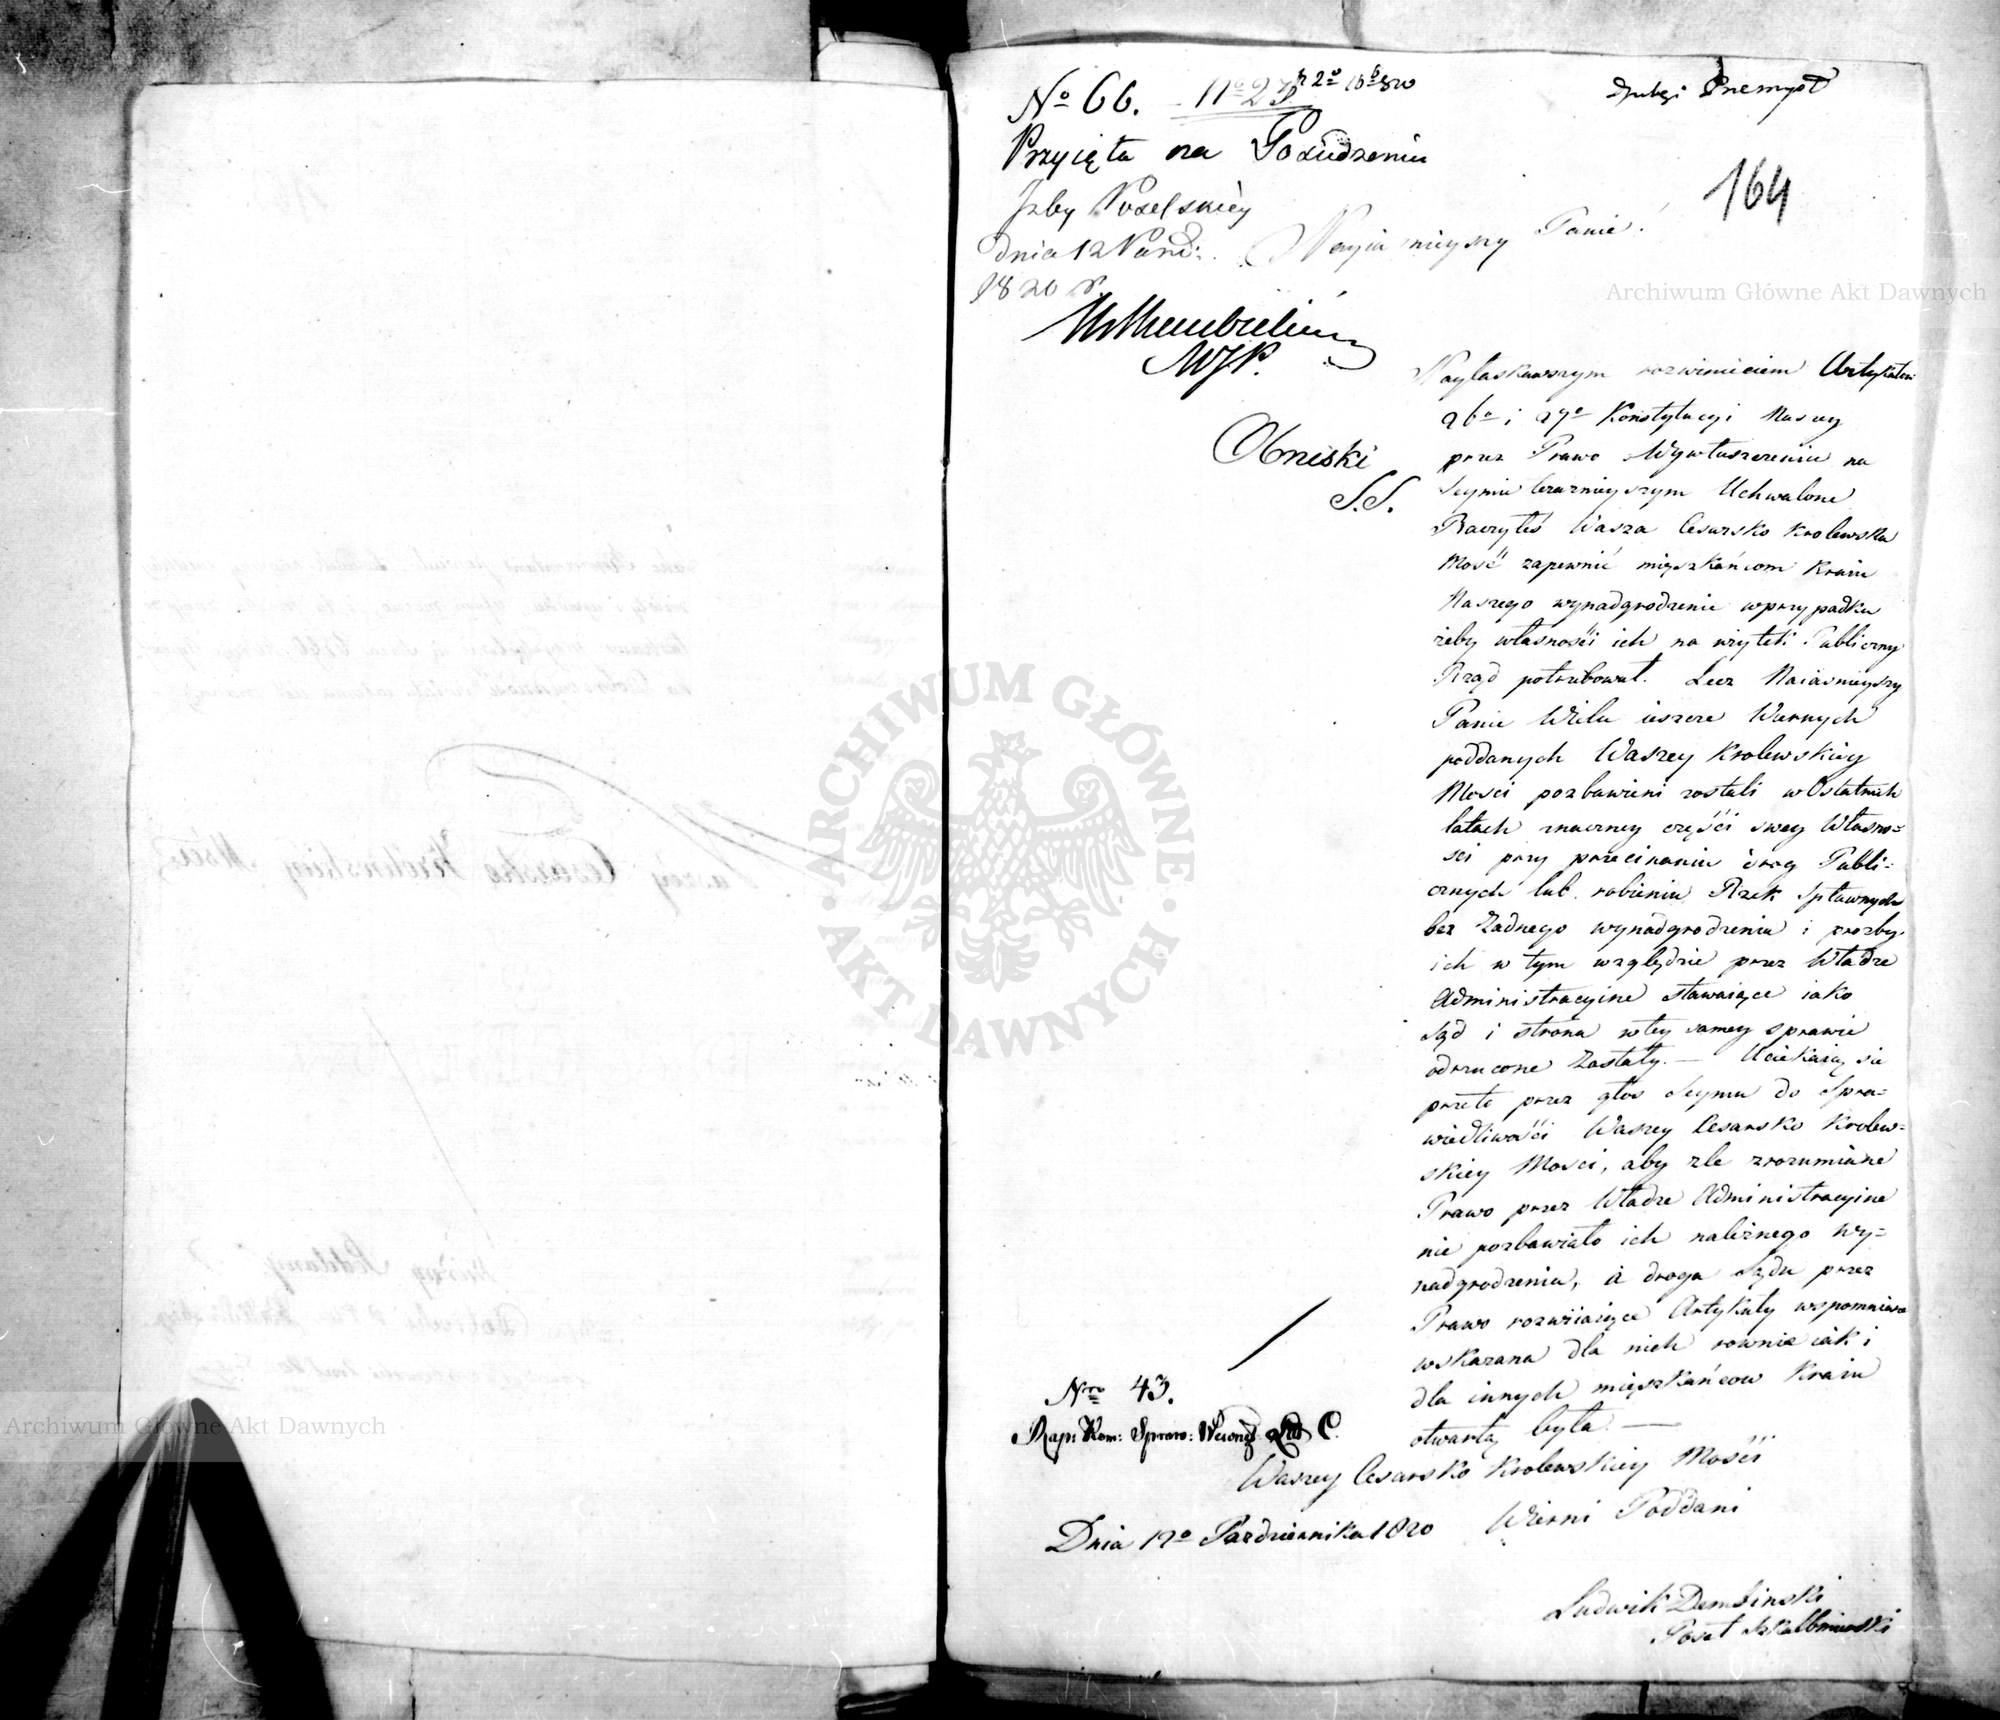 No 66.
Przyięta na Posiedzeniu
Izby Poselskiey
dnia 12 Paźd:
1820 r.
WJP.
Obniski
S.S.
Przemysł
164
Nayiaśnieyszy Panie!
Nayłaskawszym rozwinieciem Artykułu
26o i 27o Konstytucyi Naszey
przez Prawo Wywłaszczenia na
Seymie terazniejszym Uchwalone
Raczyłeś Wasza Cesarsko Krolewska
Mość zapewnić mięszkańcom Kraiu
Naszego wynadgrodzenie w przypadku
żeby własności ich na użytek Publiczny
Rząd potrzebował. Lecz Naiasnieyszy
Panie Wielu ieszcze Wiernych
poddanych Waszey Krolewskiey
Mosci pozbawieni zostali w Ostatnich
latach znaczney części swey Własno=
sci przy przecinaniu drog Publi=
cznych lub robieniu Rzek Spławnych
bez Żadnego wynadgrodzenia i prozby
ich w tym względzie przez Władze
Administracyine stawaiące iako
Sąd i strona w tey samey sprawie
odrzucone Zostały. — Uciekaią się
przeto przez głos Seymu do Spra=
wiedliwości Waszey Cesarsko Krolew=
skiey Mosci, aby zle zrozumiane
Prawo przez Władze Administracyine
nie pozbawiało ich należnego wy=
nadgrodzenia, a droga Sądu przez
Prawo rozwiiaiące Artykuły wspomniane
wskazana dla nich rownie iak i
dla innych mięszkańcow Kraiu
otwartą była. —
Nro 43.
Rap: Kom: Spraw: Wewnę Lit C.
Waszey Cesarsko Krolewskiey Mości
Wierni Poddani
Dnia 12o Pazdziernika 1820
Ludwik Dembinski
Poseł Szkalbmirski
Archiwum Główne Akt Dawnych
Archiwum Główne Akt Dawnych
ARCHIWUM GŁÓWNE
AKT DAWNYCH